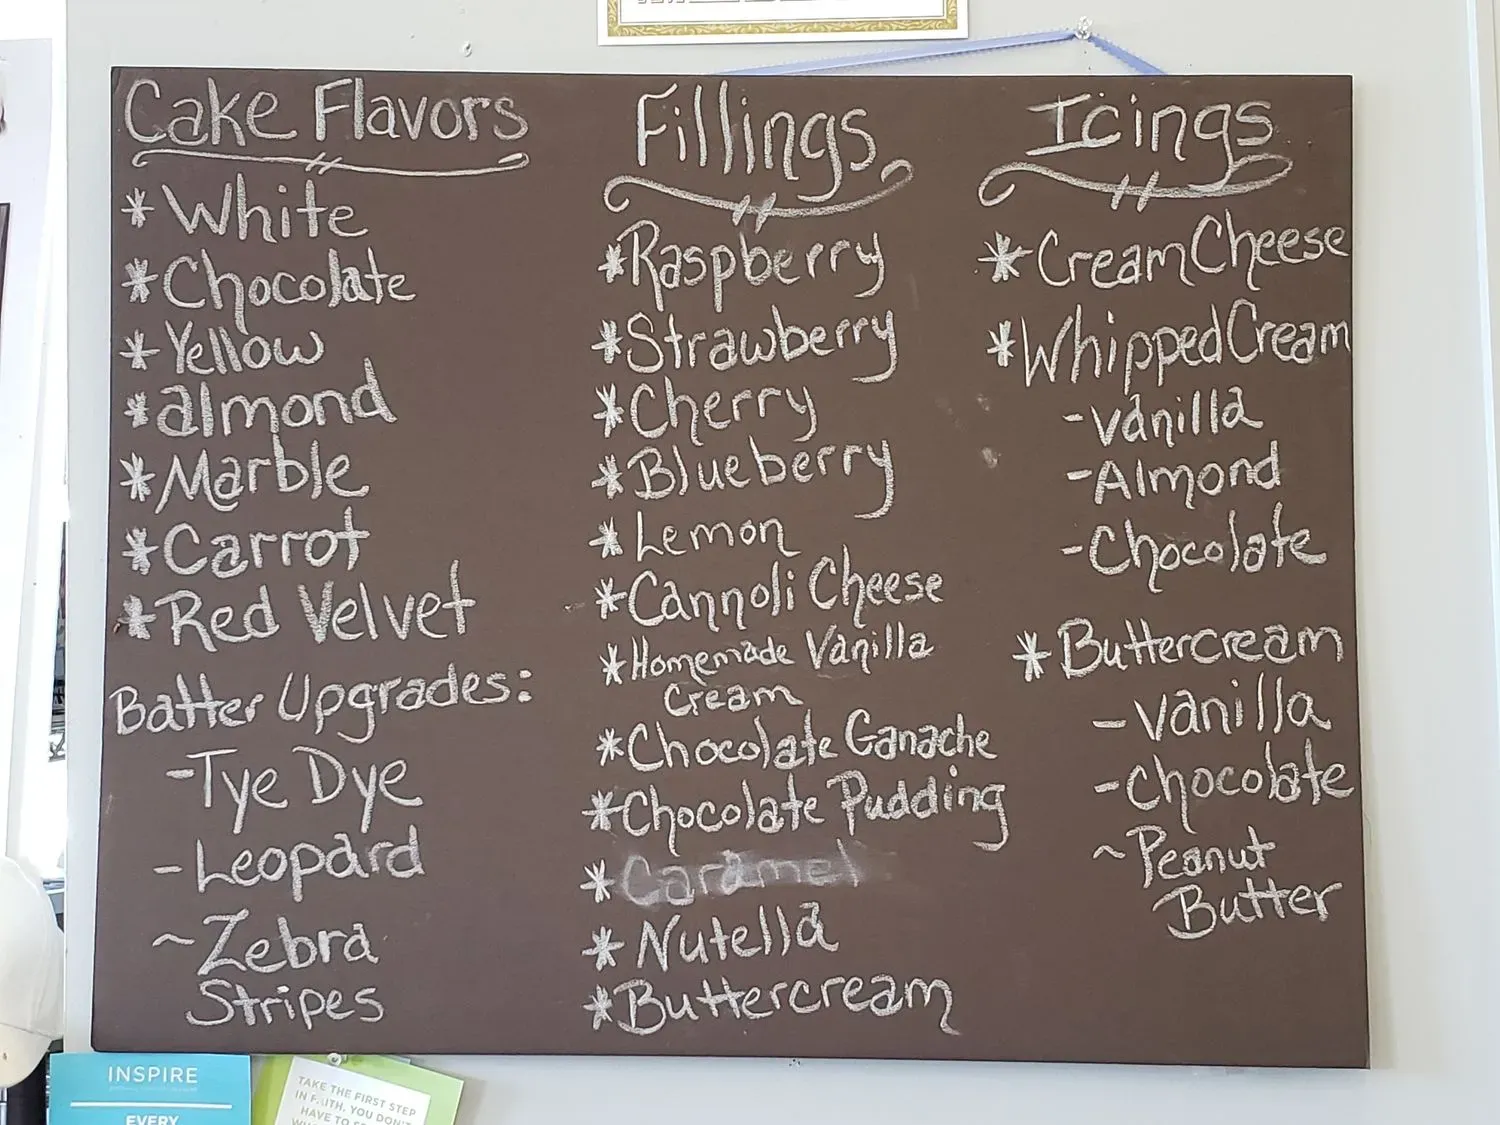 Cake Flavors
* White
* Chocolate
* Yellow
* almond
* Marble
* Carrot
* Red Velvet
Batter Upgrades:
- Tye Dye
- Leopard
~ Zebra
Stripes
Fillings
* Raspberry
* Strawberry
* Cherry
* Blueberry
* Lemon
* Cannoli Cheese
* Homemade Vanilla
Cream
* Chocolate Ganache
* Chocolate Pudding
* Caramel
* Nutella
* Buttercream
Icings
* Cream Cheese
* Whipped Cream
- Vanilla
- Almond
- Chocolate
* Buttercream
- Vanilla
- Chocolate
~ Peanut
Butter
INSPIRE
EVERY
TAKE THE FIRST STEP
IN FAITH. YOU DON'T
HAVE TO